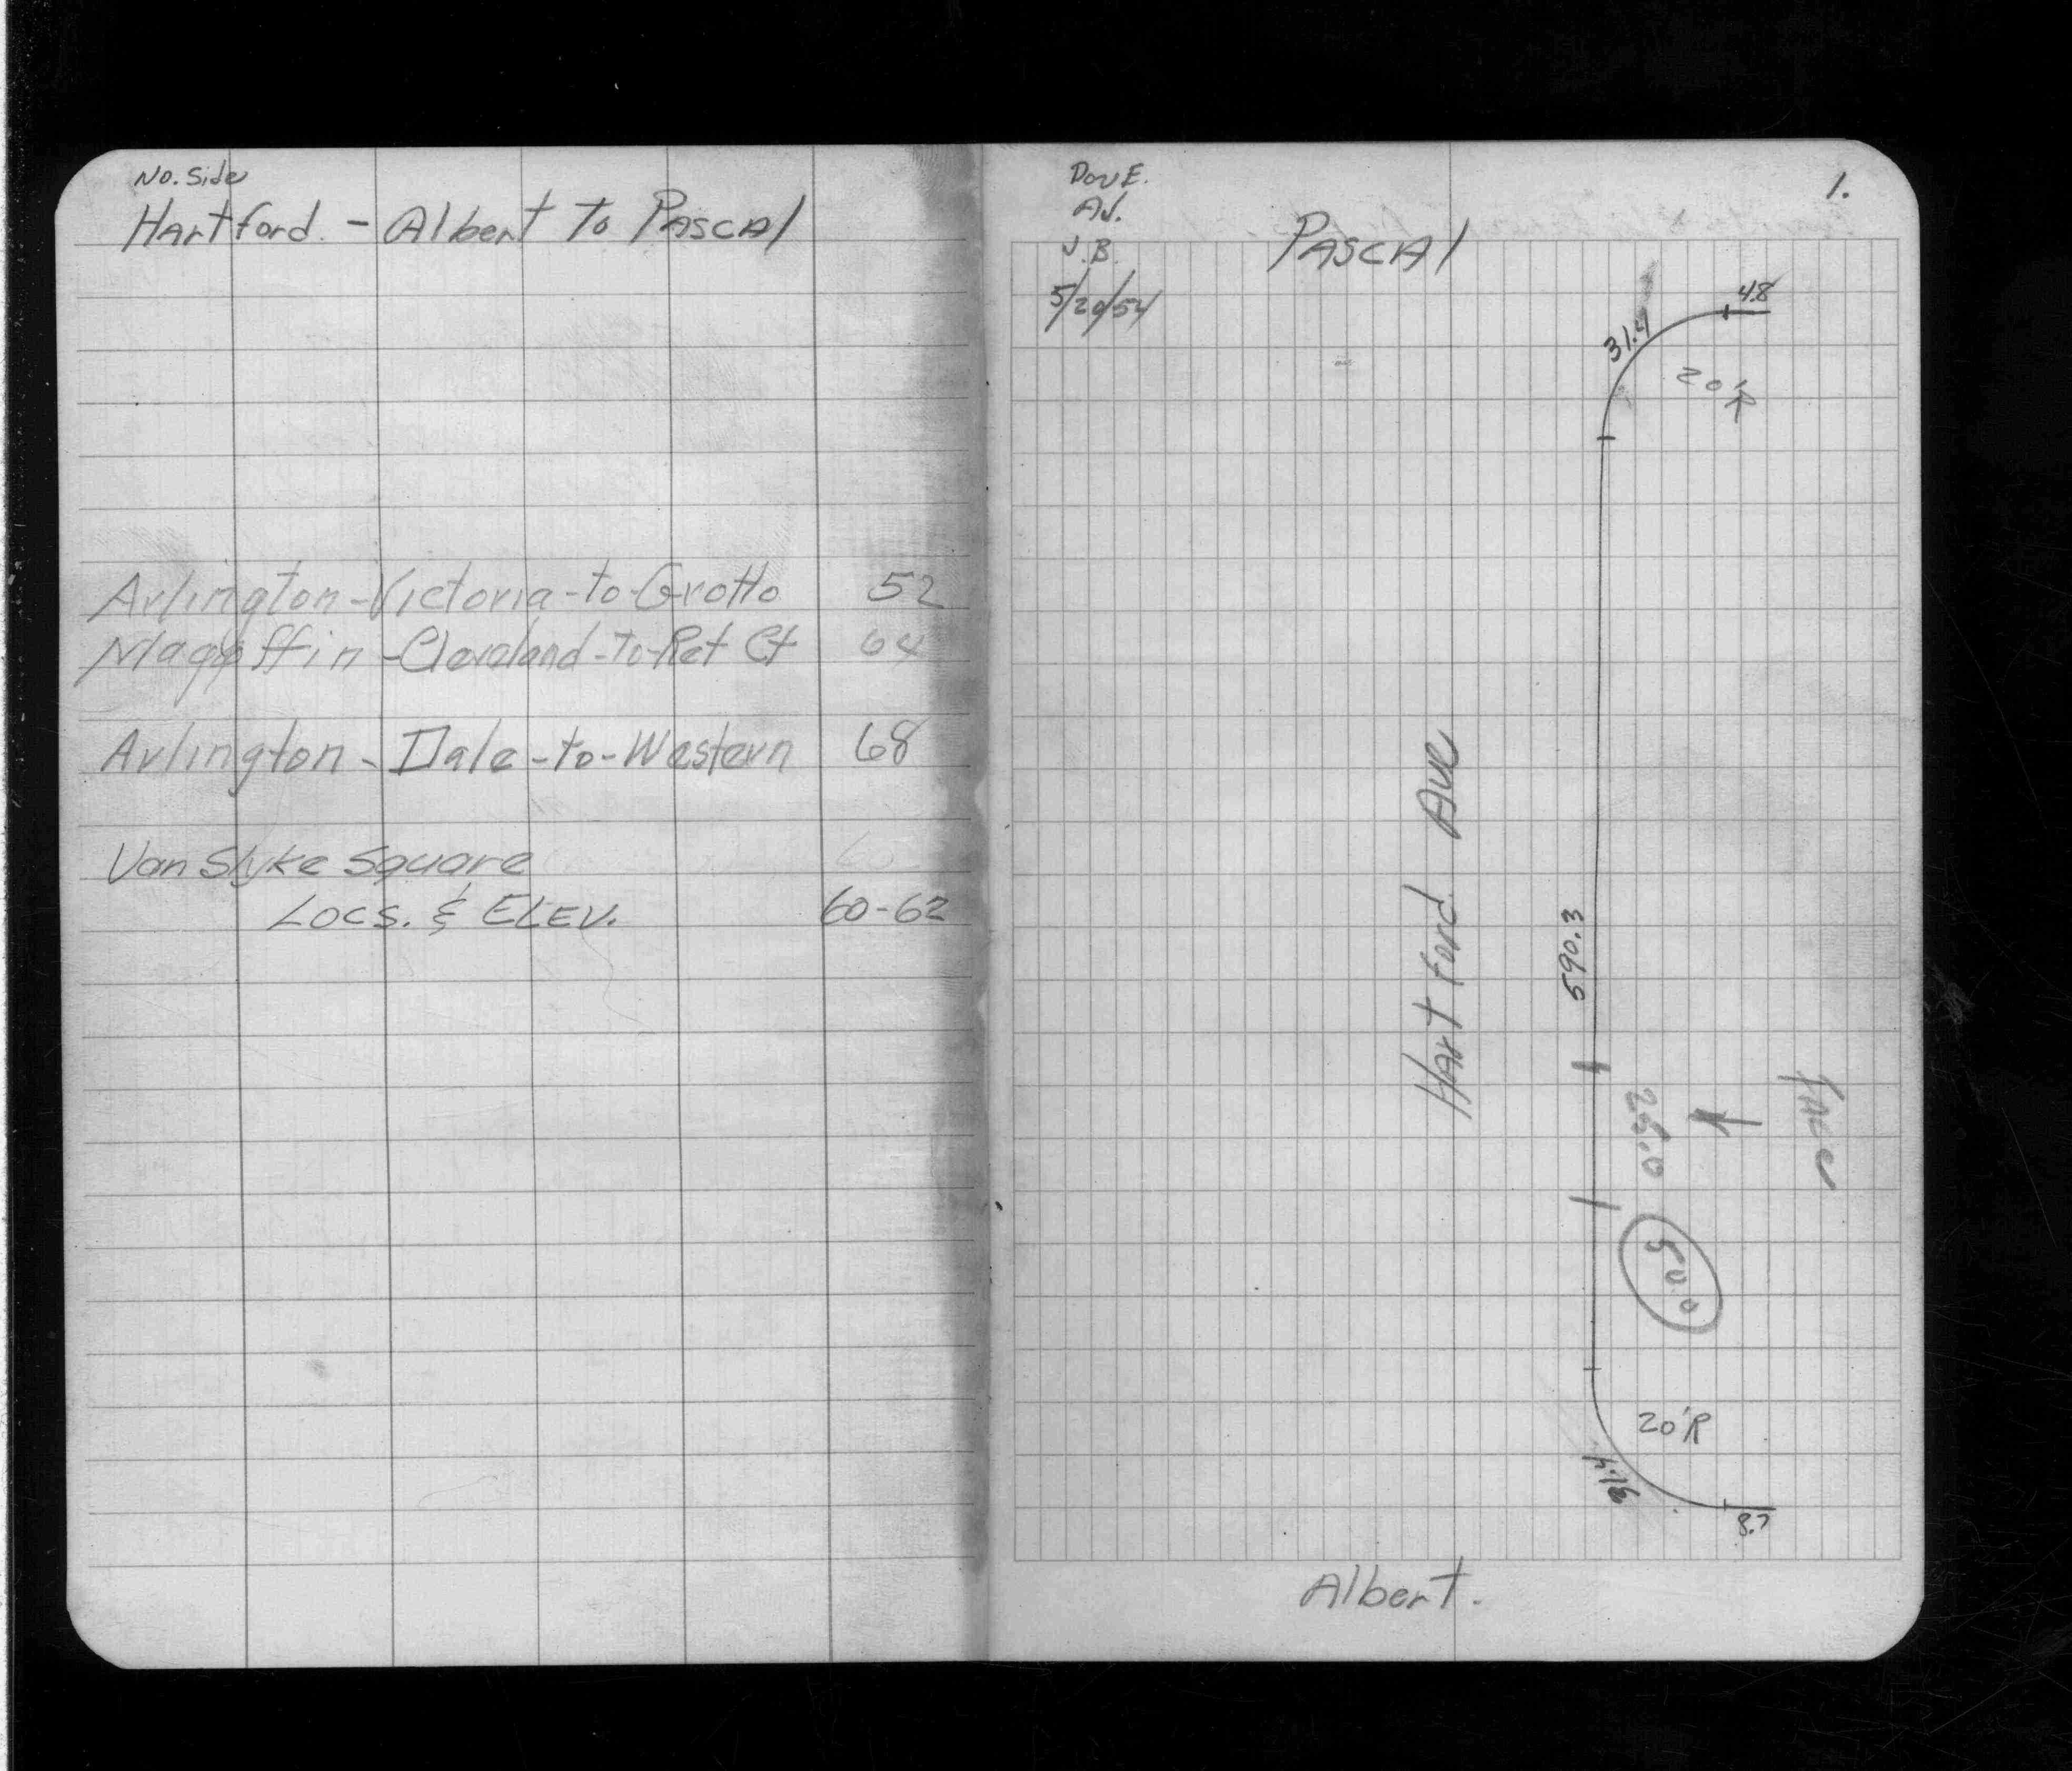 No. Side
Hartford. - Albert To PASCAl
Arlington-Victoria-to-Grotto 52
Magoffin-Cleveland-To-Ret Ct 64
Arlington - Dale-to-Western 68
Van Slyke Square
LOCS. & ELEV. 60-62
1.
Dov E.
AJ.
J.B.
5/20/54
PASCAl
4.8
31.4
20'R
Hartford Ave
590.3
26.0
50.0
20'R
31.4
8.7
Albert.